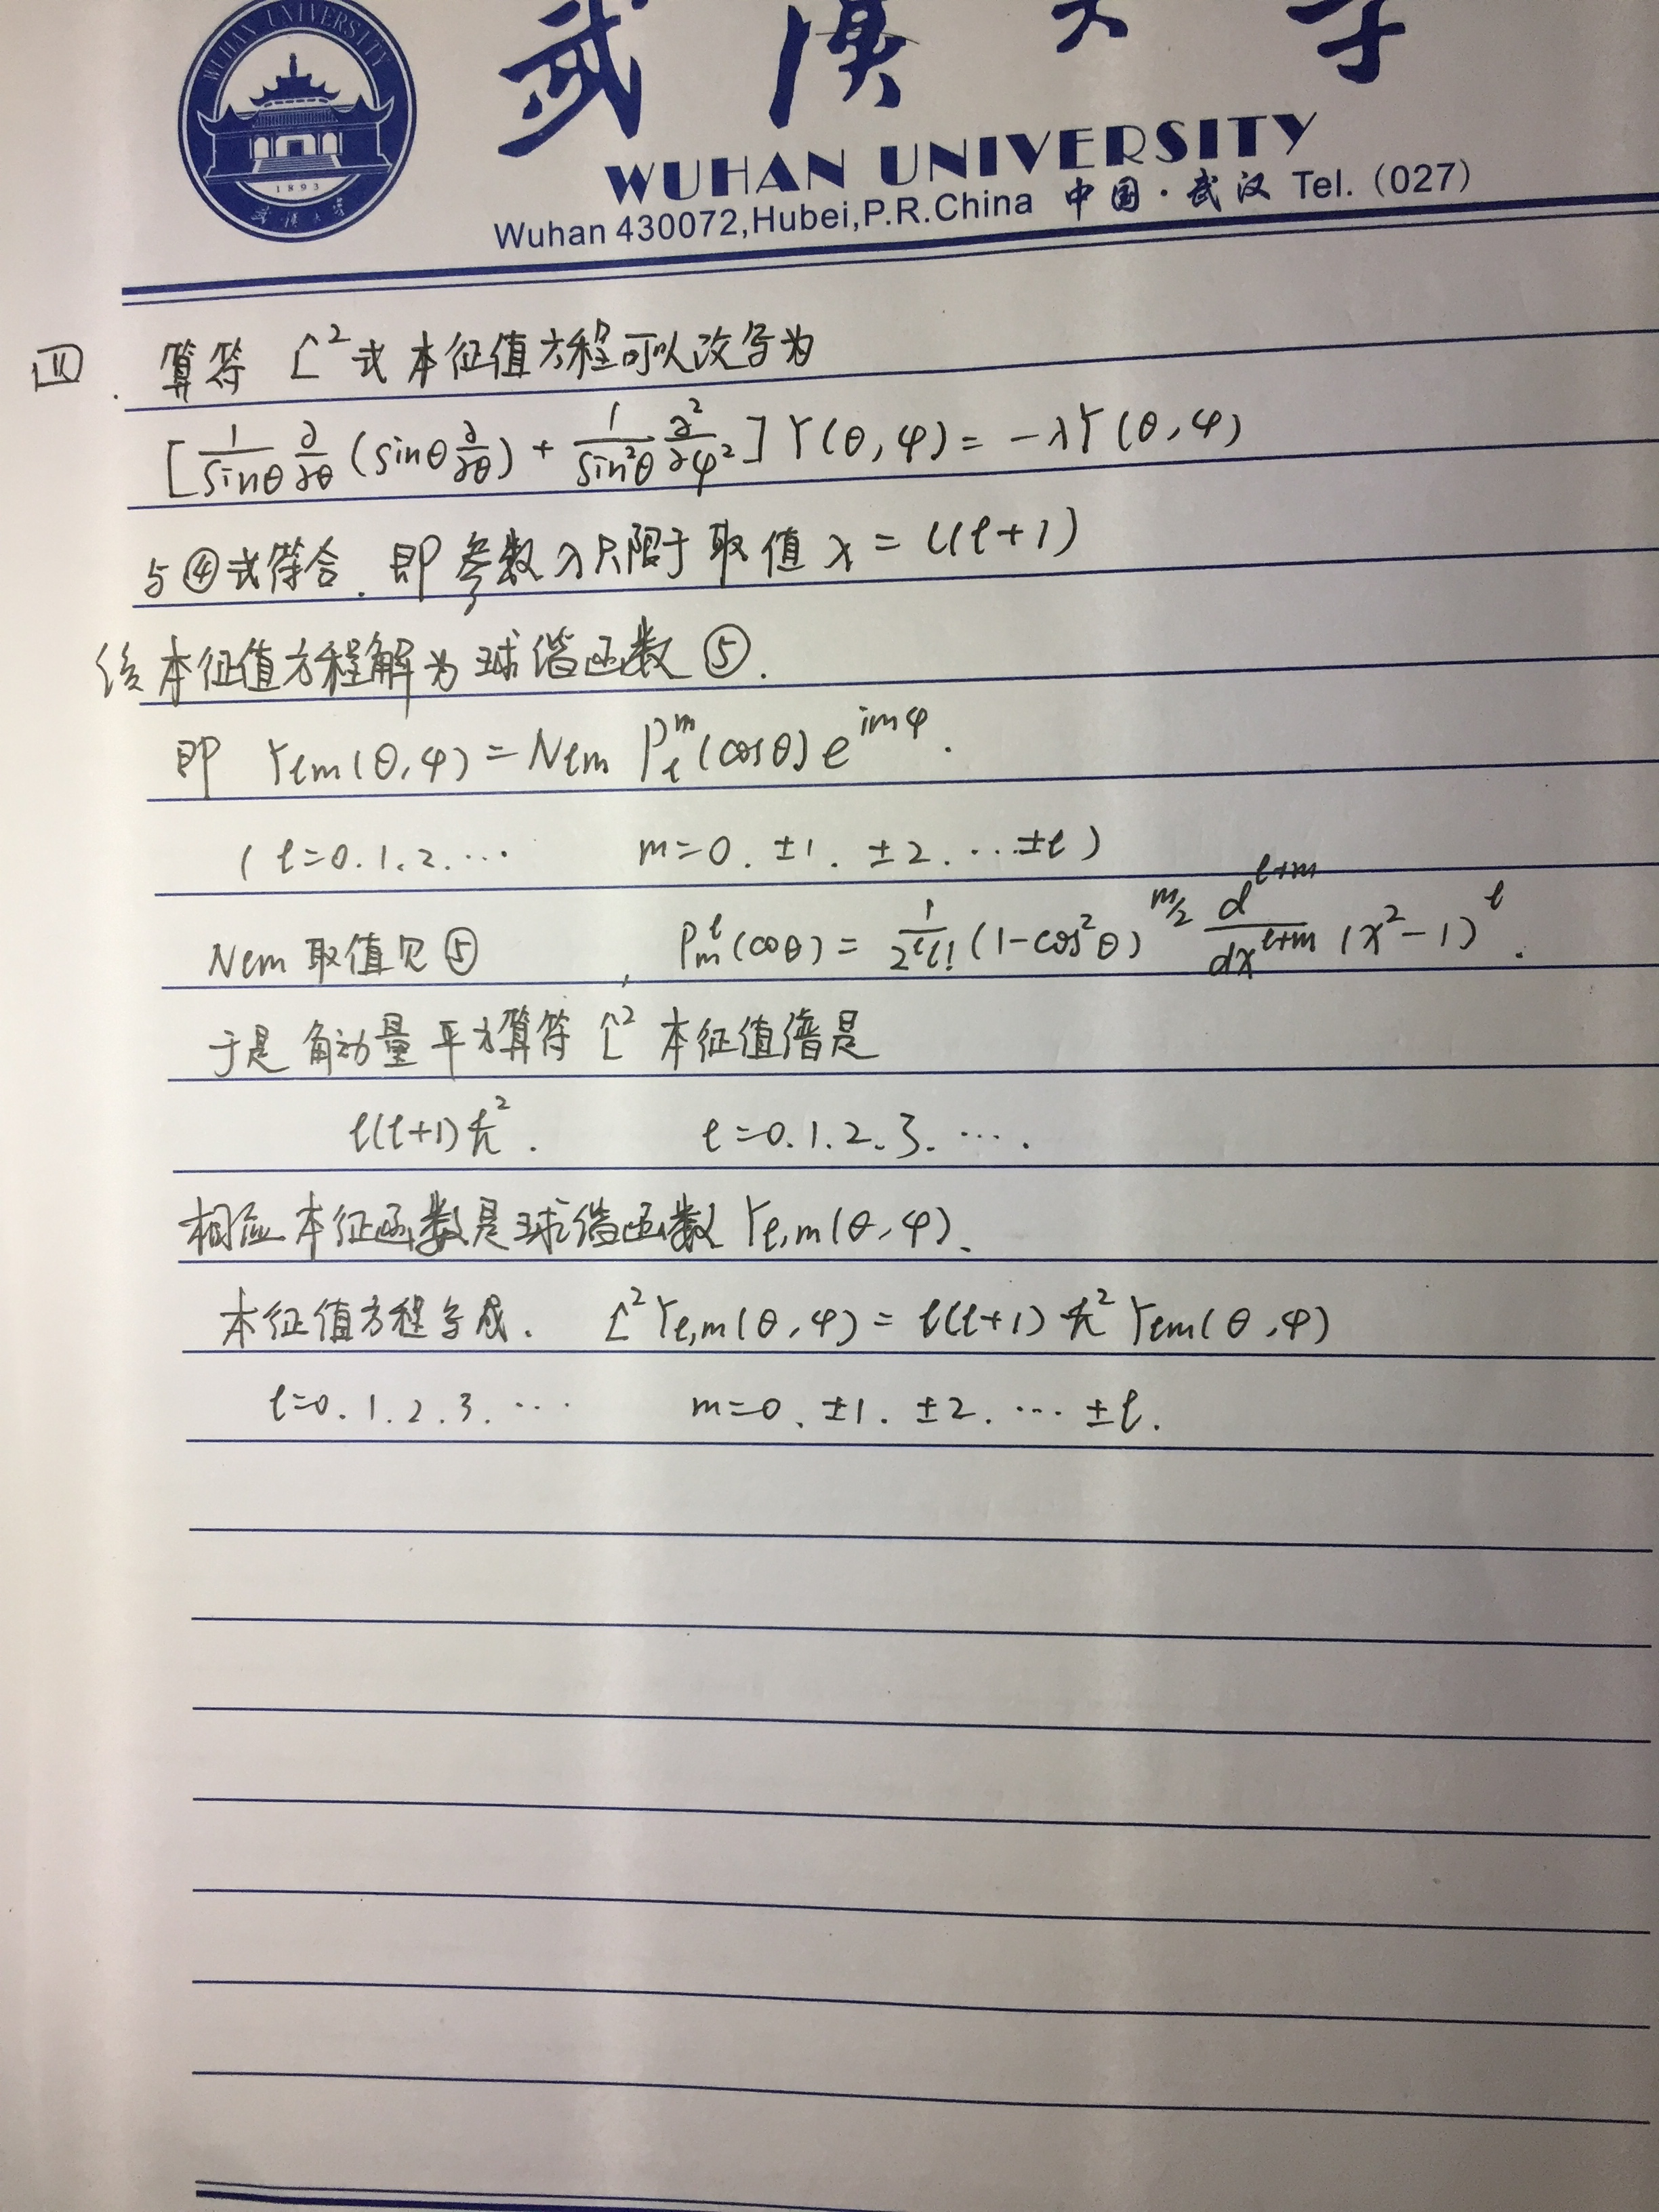 WUHAN UNIVERSITY
1893
武汉大学
武汉大学
WUHAN UNIVERSITY
Wuhan 430072,Hubei,P.R.China 中国·武汉 Tel.(027)
四. 算符 L̂² 式本征值方程可以改写为
[1/sinθ ∂/∂θ (sinθ ∂/∂θ) + 1/sin²θ ∂²/∂φ²] Y(θ,φ) = -λY(θ,φ)
与④式符合. 即参数λ只限于取值 λ = l(l+1)
该本征值方程解为球谐函数⑤.
即 Ylm(θ,φ) = Nlm Pₗᵐ(cosθ) e^{imφ}.
( l=0.1.2.… m=0. ±1. ±2. … ±l )
Nlm 取值见⑤ , Pₘˡ(cosθ) = 1/(2ˡl!) (1-cos²θ)^{m/2} d^{l+m}/dx^{l+m} (x²-1)^l.
于是角动量平方算符 L̂² 本征值谱是
l(l+1)ħ². l=0.1.2.3.….
相应本征函数是球谐函数 Yl,m(θ,φ).
本征值方程写成. L̂²Yl,m(θ,φ) = l(l+1)ħ²Ylm(θ,φ)
l=0.1.2.3.… m=0. ±1. ±2. … ±l.